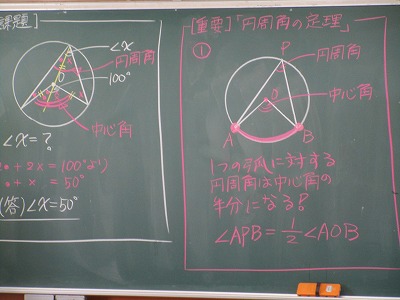 課題]
∠x
円周角
100°
中心角
∠x=?
2•+2x=100°より
•+x=50°
(答)∠x=50°
[重要]「円周角の定理」
①
P
円周角
O
中心角
A
B
1つの弧に対する
円周角は中心角の
半分になる!
∠APB=1/2∠AOB